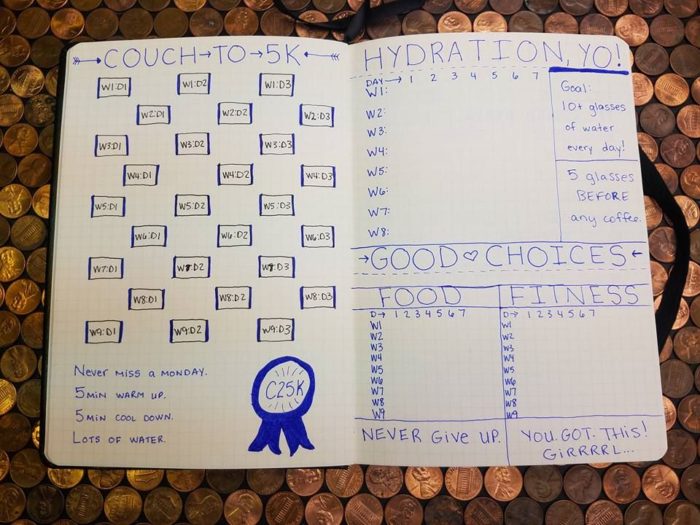 COUCH→TO→5K
W1:D1 W1:D2 W1:D3
W2:D1 W2:D2 W2:D3
W3:D1 W3:D2 W3:D3
W4:D1 W4:D2 W4:D3
W5:D1 W5:D2 W5:D3
W6:D1 W6:D2 W6:D3
W7:D1 W7:D2 W7:D3
W8:D1 W8:D2 W8:D3
W9:D1 W9:D2 W9:D3
NEVER MISS A MONDAY.
5MIN WARM UP.
5MIN COOL DOWN.
LOTS OF WATER.
C25K
HYDRATION, YO!
DAY→ 1 2 3 4 5 6 7
W1:
W2:
W3:
W4:
W5:
W6:
W7:
W8:
Goal:
10+ glasses
of water
every day!
5 glasses
BEFORE
any coffee.
→GOOD♡CHOICES←
FOOD
D→ 1 2 3 4 5 6 7
W1
W2
W3
W4
W5
W6
W7
W8
W9
NEVER GIVE UP.
FITNESS
D→ 1 2 3 4 5 6 7
W1
W2
W3
W4
W5
W6
W7
W8
W9
YOU. GOT. THIS!
GIRRRRL...